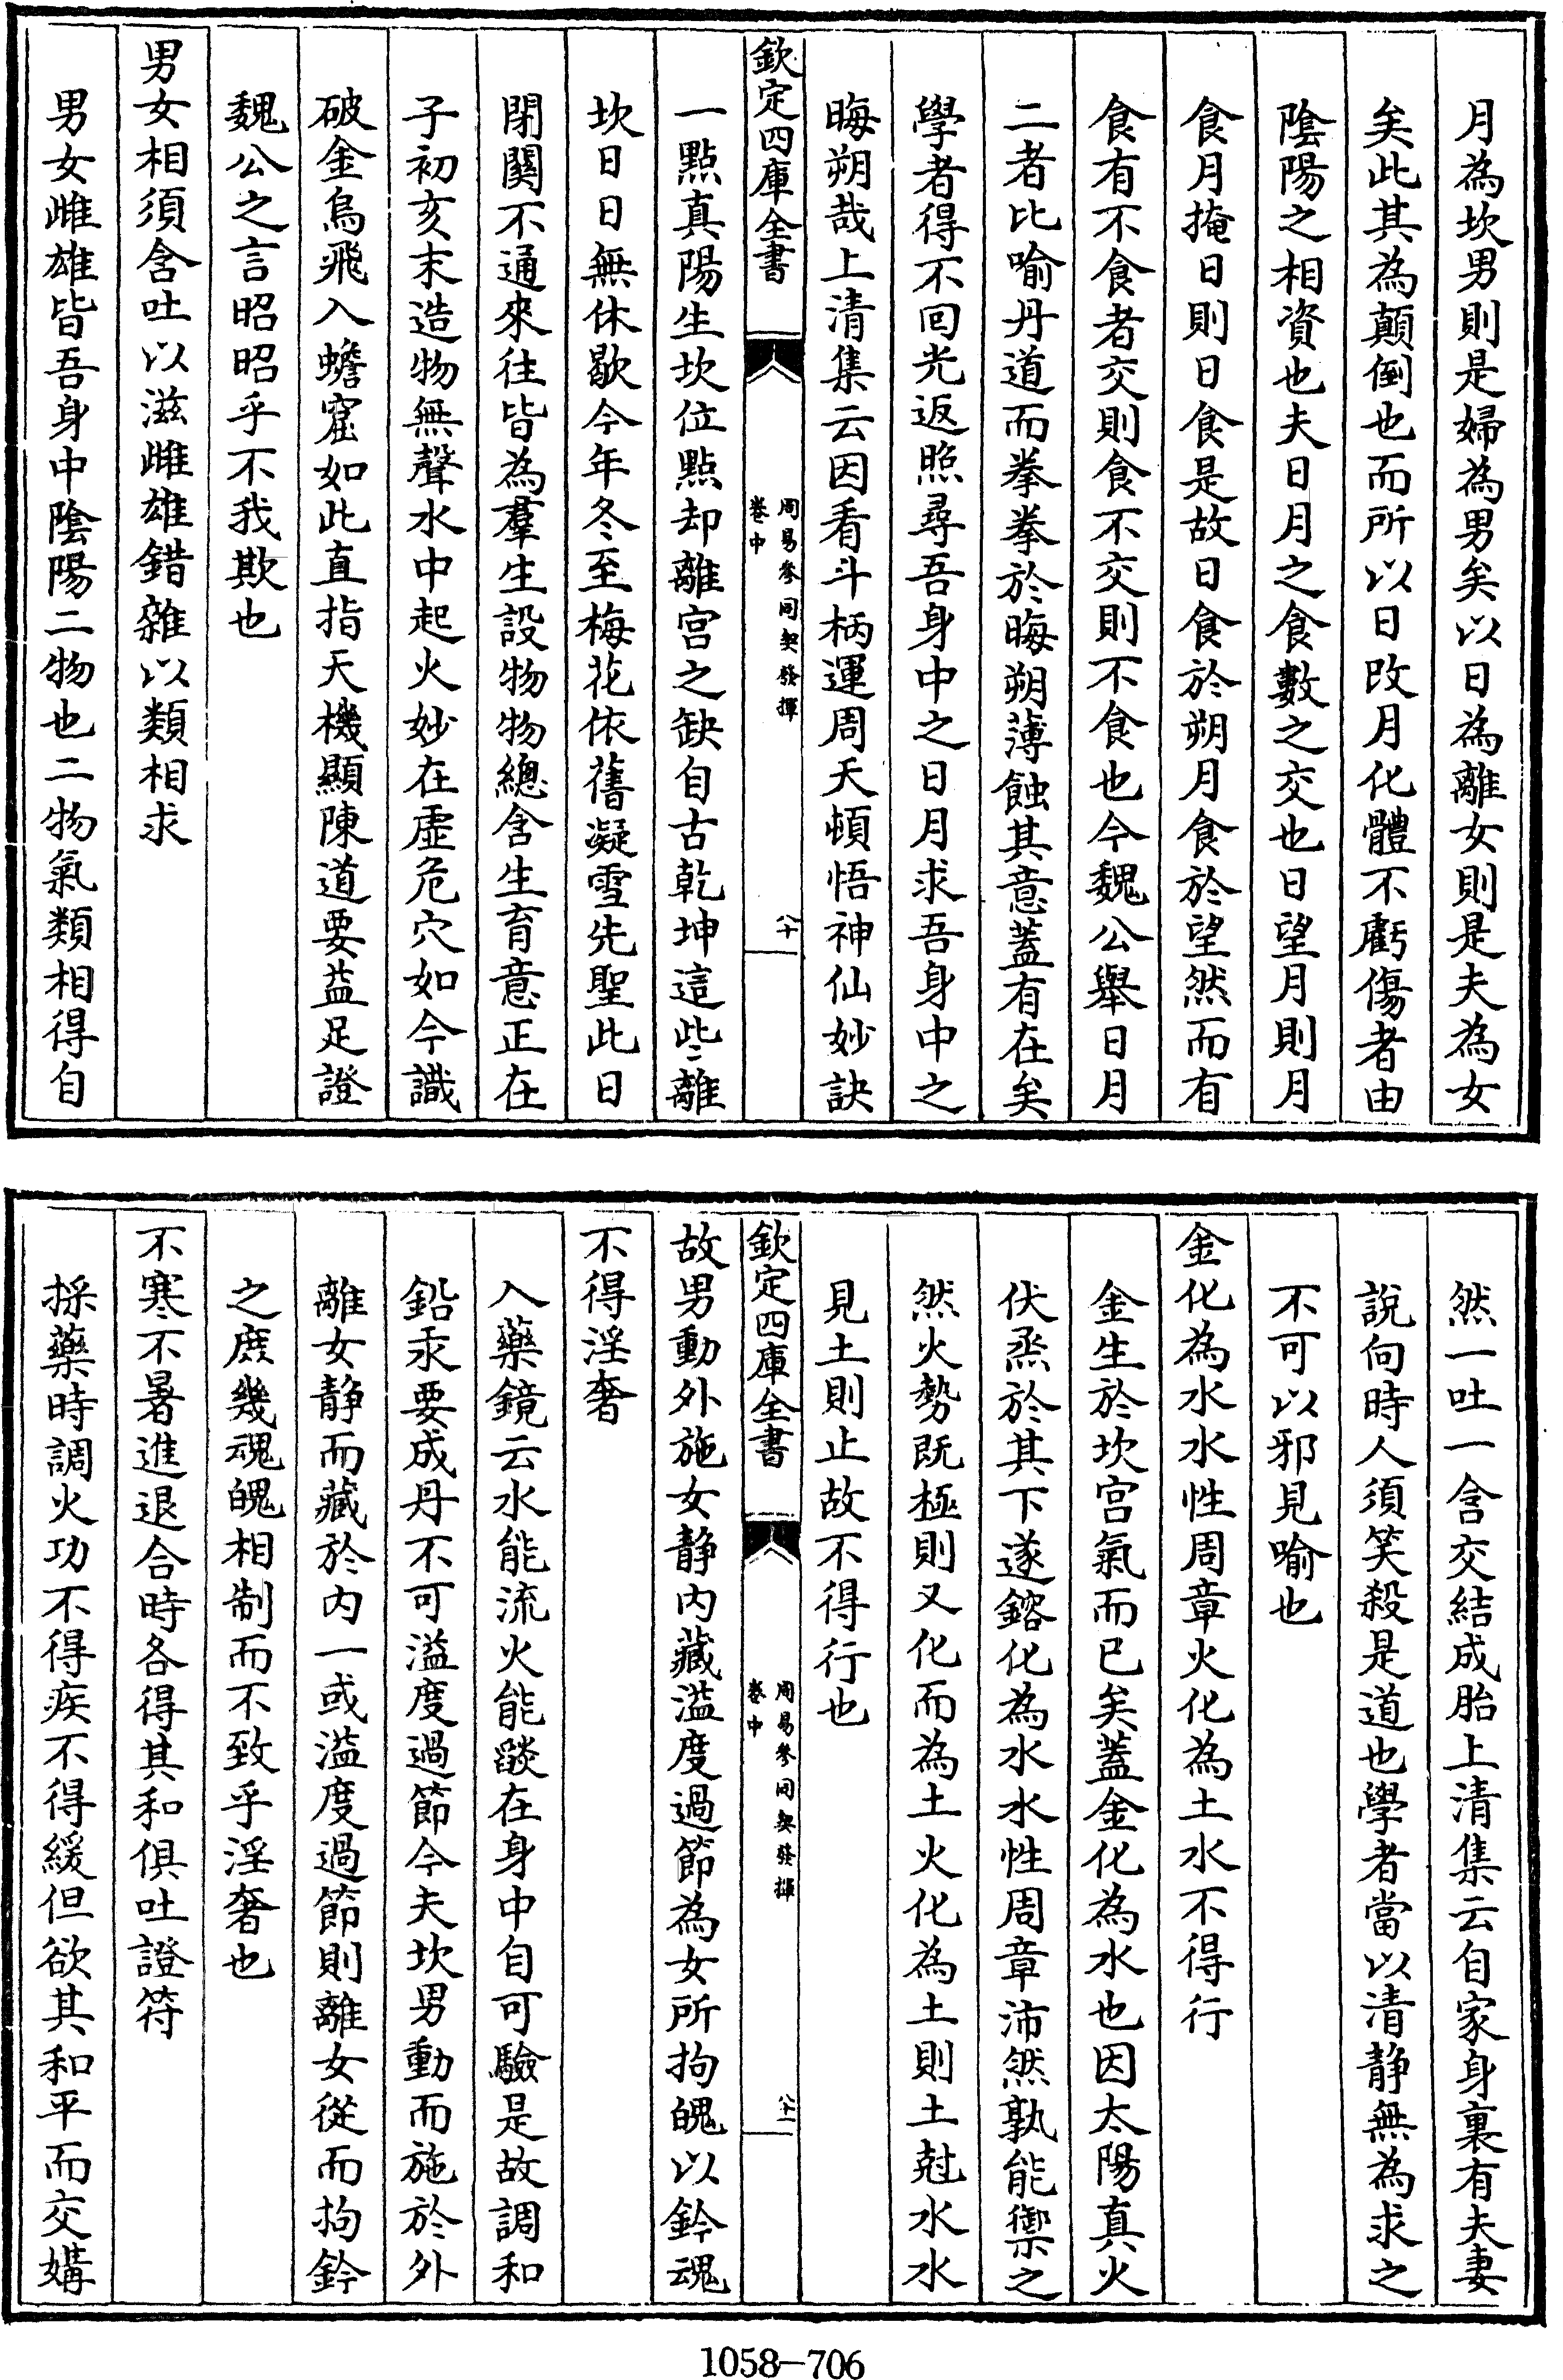 月為坎男則是婦為男矣以日為離女則是夫為女
矣此其為顛倒也而所以日改月化體不虧傷者由
陰陽之相資也夫日月之食數之交也日望月則月
食月掩日則日食是故日食於朔月食於望然而有
食有不食者交則食不交則不食也今魏公舉日月
二者比喻丹道而拳拳於晦朔薄蝕其意蓋有在矣
學者得不回光返照尋吾身中之日月求吾身中之
晦朔哉上清集云因看斗柄運周天頓悟神仙妙訣
欽定四庫全書
周易參同契發揮
卷中
八十
一點真陽生坎位點却離宫之缺自古乾坤這些離
坎日日無休歇今年冬至梅花依舊凝雪先聖此日
閉關不通來往皆為羣生設物物總含生育意正在
子初亥末造物無聲水中起火妙在虚危穴如今識
破金烏飛入蟾窟如此直指天機顯陳道要益足證
魏公之言昭昭乎不我欺也
男女相須含吐以滋雌雄錯雜以類相求
男女雌雄皆吾身中陰陽二物也二物氣類相得自
然一吐一含交結成胎上清集云自家身裏有夫妻
說向時人須笑殺是道也學者當以清静無為求之
不可以邪見喻也
金化為水水性周章火化為土水不得行
金生於坎宫氣而已矣蓋金化為水也因太陽真火
伏烝於其下遂鎔化為水水性周章沛然孰能禦之
然火勢既極則又化而為土火化為土則土尅水水
見土則止故不得行也
欽定四庫全書
周易參同契發揮
卷中
八十一
故男動外施女静内藏溢度過節為女所拘魄以鈐魂
不得淫奢
入藥鏡云水能流火能燄在身中自可驗是故調和
鉛汞要成丹不可溢度過節今夫坎男動而施於外
離女静而藏於内一或溢度過節則離女從而拘鈐
之庶幾魂魄相制而不致乎淫奢也
不寒不暑進退合時各得其和俱吐證符
採藥時調火功不得疾不得緩但欲其和平而交媾
1058—706